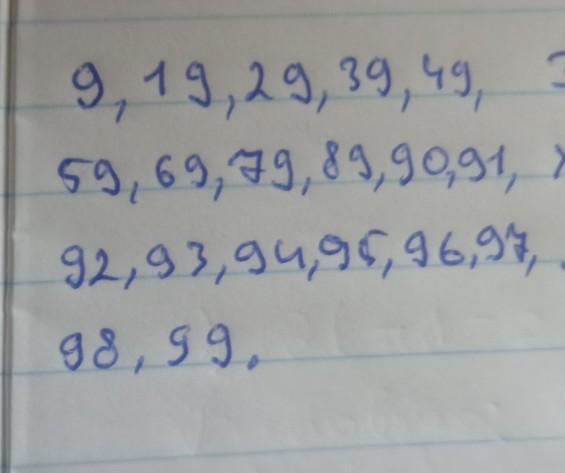 9, 19, 29, 39, 49,
59, 69, 79, 89, 90, 91,
92, 93, 94, 95, 96, 97,
98, 99.